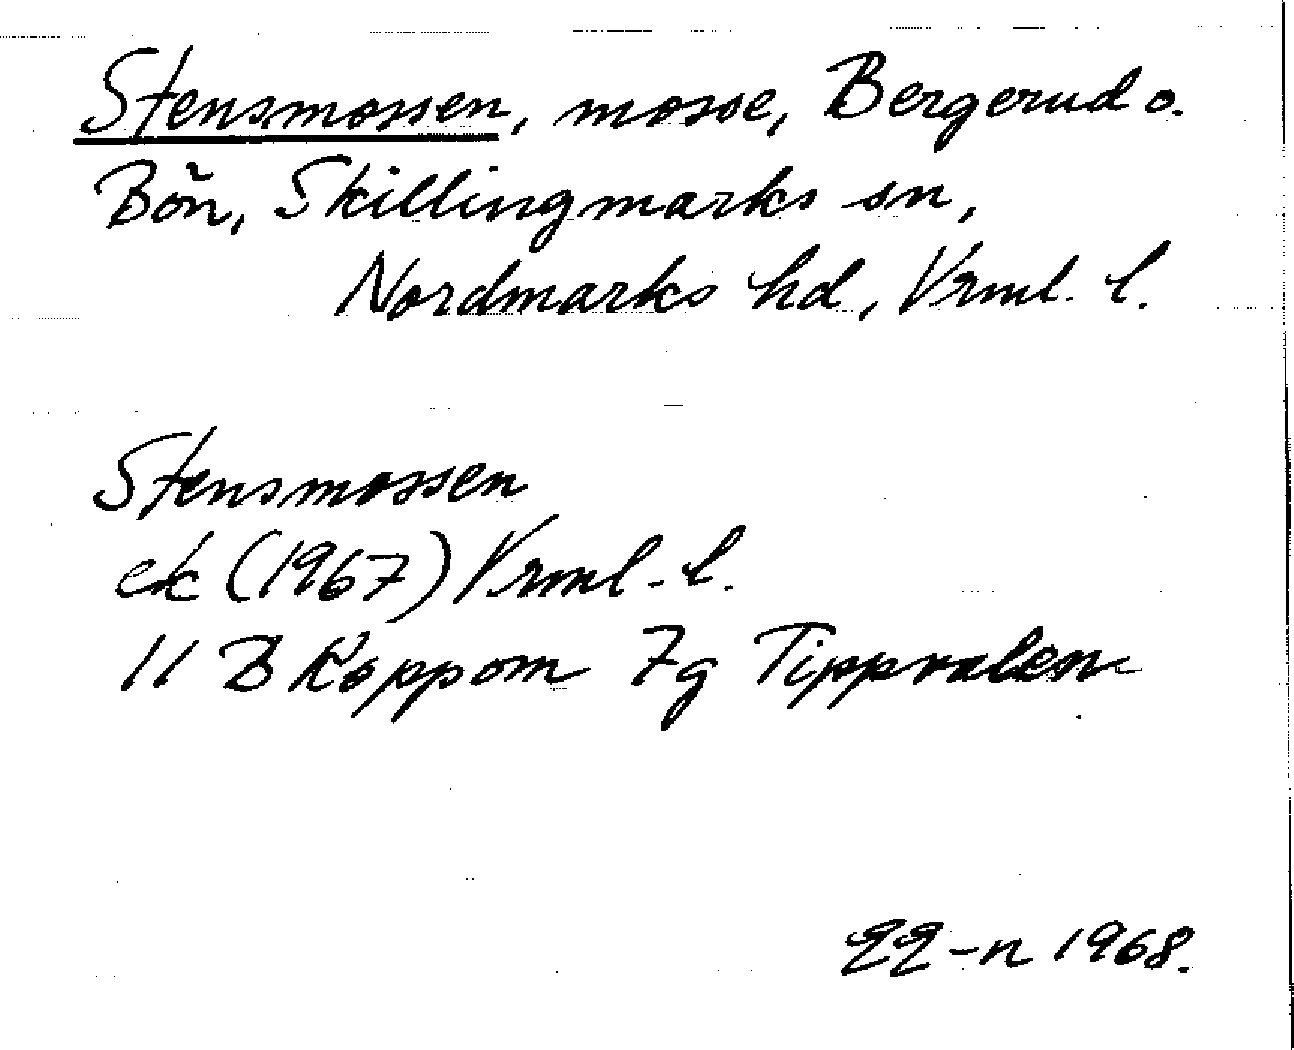 Stensmossen, mosse, Bergerud o.
Bön, Skillingmarks sn,
Nordmarks hd, Vrml. l.
Stensmossen
ek (1967) Vrml. l.
11 B Koppom 7g Tippvalen
1968.